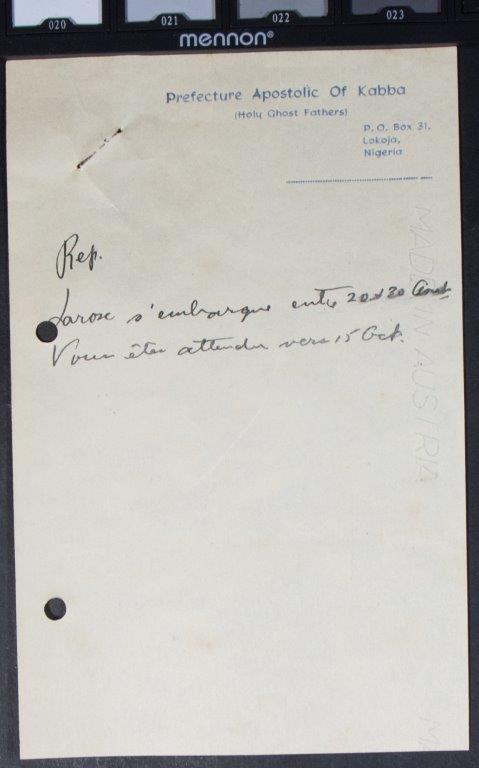 020 021 022 023
mennon®
Prefecture Apostolic Of Kabba
(Holy Ghost Fathers)
P.O. Box 31,
Lokoja,
Nigeria
MADE IN AUSTRIA
Rep.
Larose s'embarque entre 20 & 30 Août
Vous êtes attendu vers 15 Oct.